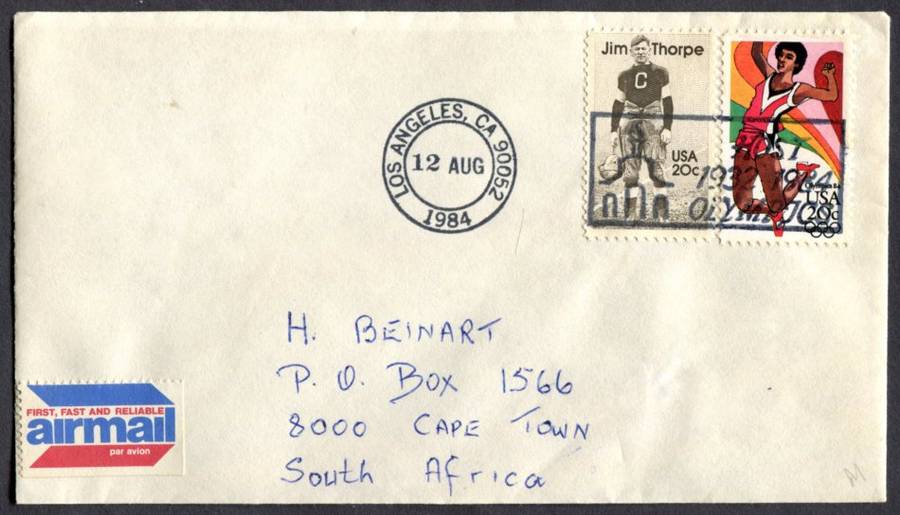 Jim Thorpe
USA
20c
Olympics 84
USA
20c
LOS ANGELES, CA 90052
12 AUG
1984
HOST
1932 1984
OLYMPICS
H. BEINART
P. O. Box 1566
8000 CAPE TOWN
South Africa
FIRST, FAST AND RELIABLE
airmail
par avion
M